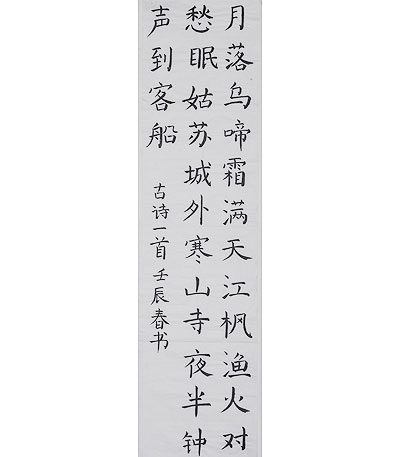 月落乌啼霜满天江枫渔火对
愁眠姑苏城外寒山寺夜半钟
声到客船
古诗一首壬辰春书